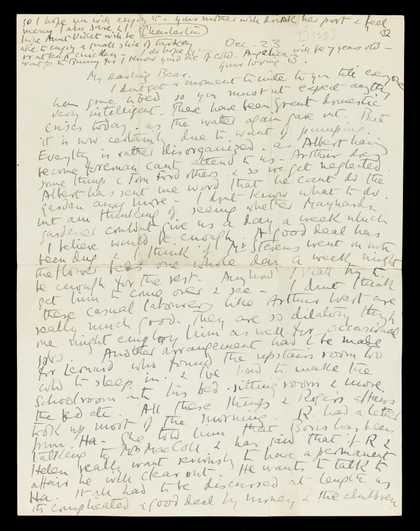 so I hope you will enjoy it - your mother will drink port & feel
merry I am sure. I
hope Aunt Violet will be
able to enjoy a small slice of turkey
or at least chicken. I do hope
(Charleston)
Dec. 23
Angelica will be 7 years old -
your loving B.
My darling Bear,
I haven't a moment to write to you till everyone
has gone to bed so you must not expect anything
very intelligent. There have been great domestic
crises today - as the water again gave out. But
it is now certainly due to want of pumping.
Everything is rather disorganized - as Albert having
become foreman can't attend to us - Arthur does
some things & Tom Ford others & so we get neglected.
Albert has sent me word that he can't do the
garden any more - I don't know what to do
but am thinking of seeing whether Maynard's
gardener couldn't give us a day a week which
I believe would be enough. A good deal has
been done & I think if Mr Stevens went on with
the flower beds one whole day a week might
be enough for the rest. Anyhow I shall try to
get him to come over & see - I don't think
these casual labourers like Arthur West are
really much good. They are so dilatory though
one might employ him as well for occasional
jobs. Another arrangement had to be made
for Leonard who found the upstairs room too
cold to sleep in. & we had to make the
schoolroom into his bed-sitting room & move
the bed etc. All these things & Roger's affairs
took up most of the morning. R had a letter
from Ha. She told him that Boris has been
talking to Mrs MacColl & has said that if R &
Helen really want seriously to have a permanent
affair he will clear out. He wants to talk to
Ha. It all had to be discussed at length as
it's complicated a good deal by money & the children